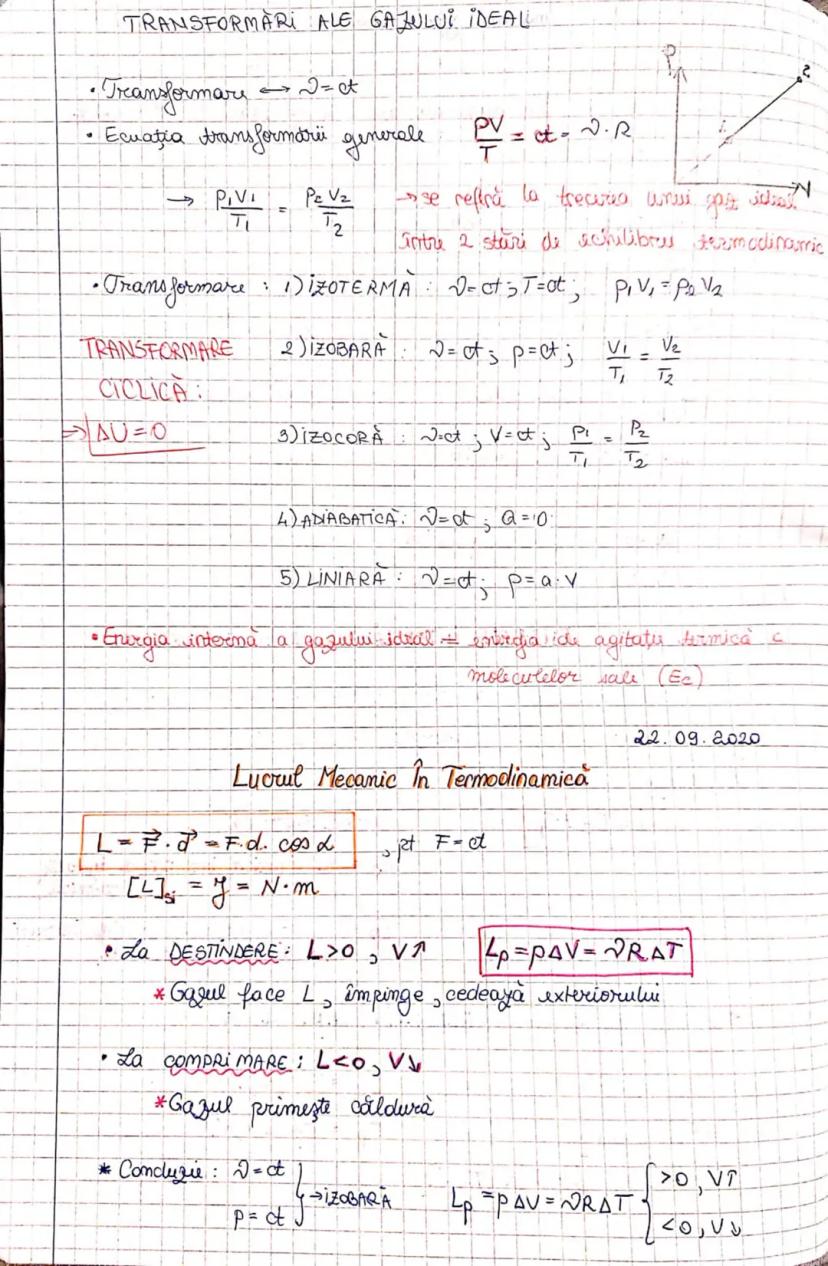 TRANSFORMĂRI ALE GAZULUI IDEAL
P
2
1
V
• Transformare ↔ ν=ct
• Ecuația transformării generale PV/T = ct = ν·R
→ P1V1/T1 = P2V2/T2 → se referă la trecerea unui gaz ideal
între 2 stări de echilibru termodinamic
• Transformare : 1) IZOTERMĂ : ν=ct ; T=ct ; p1V1 = p2V2
TRANSFORMARE 2) IZOBARĂ : ν=ct ; p=ct ; V1/T1 = V2/T2
CICLICĂ :
⇒ ΔU=0 3) IZOCORĂ : ν=ct ; V=ct ; P1/T1 = P2/T2
4) ADIABATICĂ : ν=ct ; Q=0
5) LINIARĂ : ν=ct ; p=a·V
• Energia internă a gazului ideal = energia de agitație termică a
moleculelor sale (Ec)
22.09.2020
Lucrul Mecanic În Termodinamică
L = F⃗·d⃗ = F·d·cos α , pt F=ct
[L]SI = J = N·m
• La DESTINDERE : L>0 , V↑ Lp = pΔV = νRΔT
* Gazul face L, împinge, cedează exteriorului
• La COMPRIMARE : L<0, V↓
* Gazul primește căldură
* Concluzie : ν=ct
p=ct } → IZOBARĂ Lp = pΔV = νRΔT { >0 , V↑
<0 , V↓